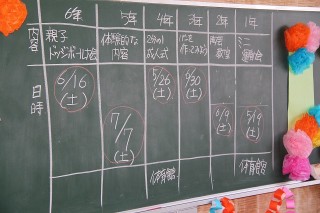 6年 5年 4年 3年 2年 1年
内容
親子
ドッジボール大会
体験的な
内容
2分の1
成人式
教室
ミニ
運動会
日時
6/16
(土)
7/7
(土)
5/26
(土)
6/30
(土)
6/9
(土)
5/19
(土)
体育館
体育館